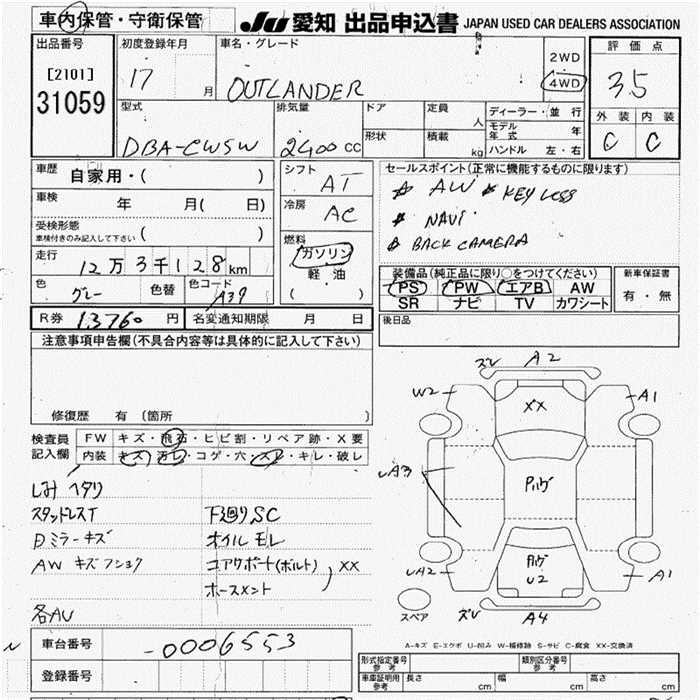 車内保管・守衛保管
JU 愛知 出品申込書 JAPAN USED CAR DEALERS ASSOCIATION
出品番号 初度登録年月 車名・グレード 2WD 評価点
[2101] 17 月 OUTLANDER 4WD 3.5
31059
型式 排気量 ドア 定員 人 ディーラー・並行 外装 内装
DBA-CW5W 2400 CC 形状 積載 kg モデル年式 年 C C
ハンドル 左・右
車歴 自家用・( ) シフト AT セールスポイント(正常に機能するものに限ります)
車検 年 月( 日) 冷房 AC AW KEYLESS
受検形態 NAVI
車検付きのみ記入して下さい ( ) 燃料 BACK CAMERA
走行 12万3千128km ガソリン
軽油 装備品(純正品に限り○をつけてください) 新車保証書
色 グレー 色替 色コード A39 ( ) PS PW エアB AW 有・無
SR ナビ TV カワシート
R券 13760 円 名変通知期限 月 日 後日品
注意事項申告欄(不具合内容等は具体的に記入して下さい)
修復歴 有 (箇所 )
検査員 FW キズ・飛石・ヒビ割・リペア跡・X要
記入欄 内装 キズ・汚レ・コゲ・穴・スレ・キレ・破レ
シミ ヘタリ
スタッドレスT 下廻りSC
Dミラーキズ オイルモレ
AW キズフショク コアサポート(ボルト) XX
ホースメント
各AU
ズレ A2
W2 A1
XX
A3 Pルーフ
A2 U2 A1
スペア ズレ A4
A-キズ E-エクボ U-凹み W-補修跡 S-サビ C-腐食 XX-交換済
車台番号 -0006553
登録番号
形式指定番号 参考 類別区分番号 参考
車庫証明用 参考 長さ cm 幅 cm 高さ cm